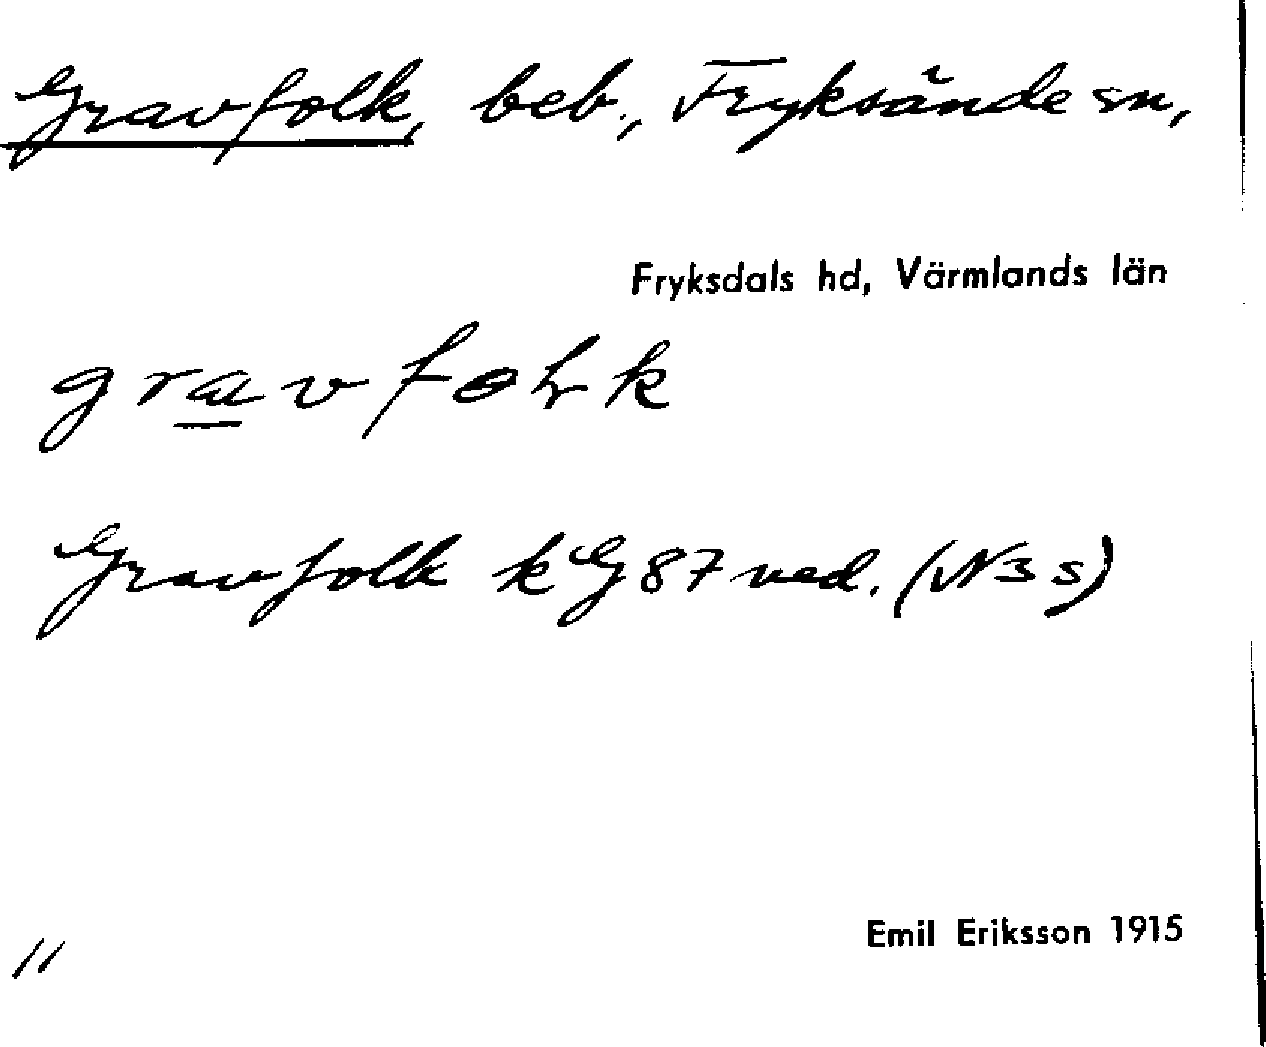 Gravfolk, beb., Fryksände sn,
Fryksdals hd, Värmlands län
gravfoɫk
Gravfolk kG 87 ned. (N3s)
Emil Eriksson 1915
11